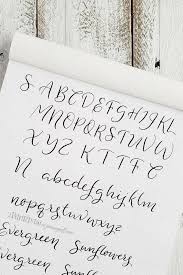 S A B C D E F G H I J K
L M N O P Q R S T U V W
X Y Z K T T F C
N abcdefghijklm
nopqrstuvwxyz
Evergreen Sunflowers
Evergreen Sunflowers